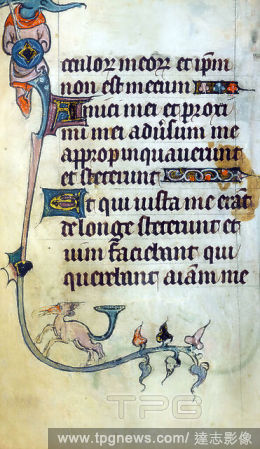 culorꝝ meorꝝ et ip̄m
non est mecum
Amici mei et proxi
mi mei adũsum me
appropinquauerunt
et steterunt
Et qui iuxta me erãt
de longe steterunt et
uim faciebant qui
querebant aīam me
TPG
www.tpgnews.com/ 達志影像